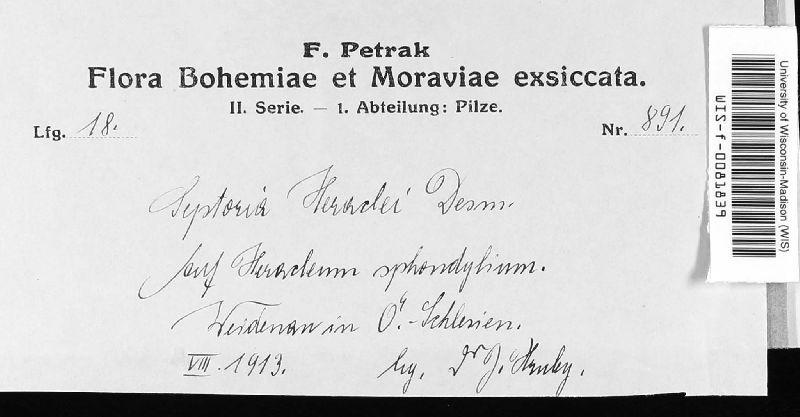 F. Petrak
Flora Bohemiae et Moraviae exsiccata.
II. Serie. — 1. Abteilung: Pilze.
Lfg. 18.
Nr. 891.
Septoria Heraclei Desm.
Auf Heracleum sphondylium.
Weidenau in Ö.-Schlesien.
VIII. 1913. leg. Dr J. Hruby.
University of Wisconsin-Madison (WIS)
WIS-f-0081839